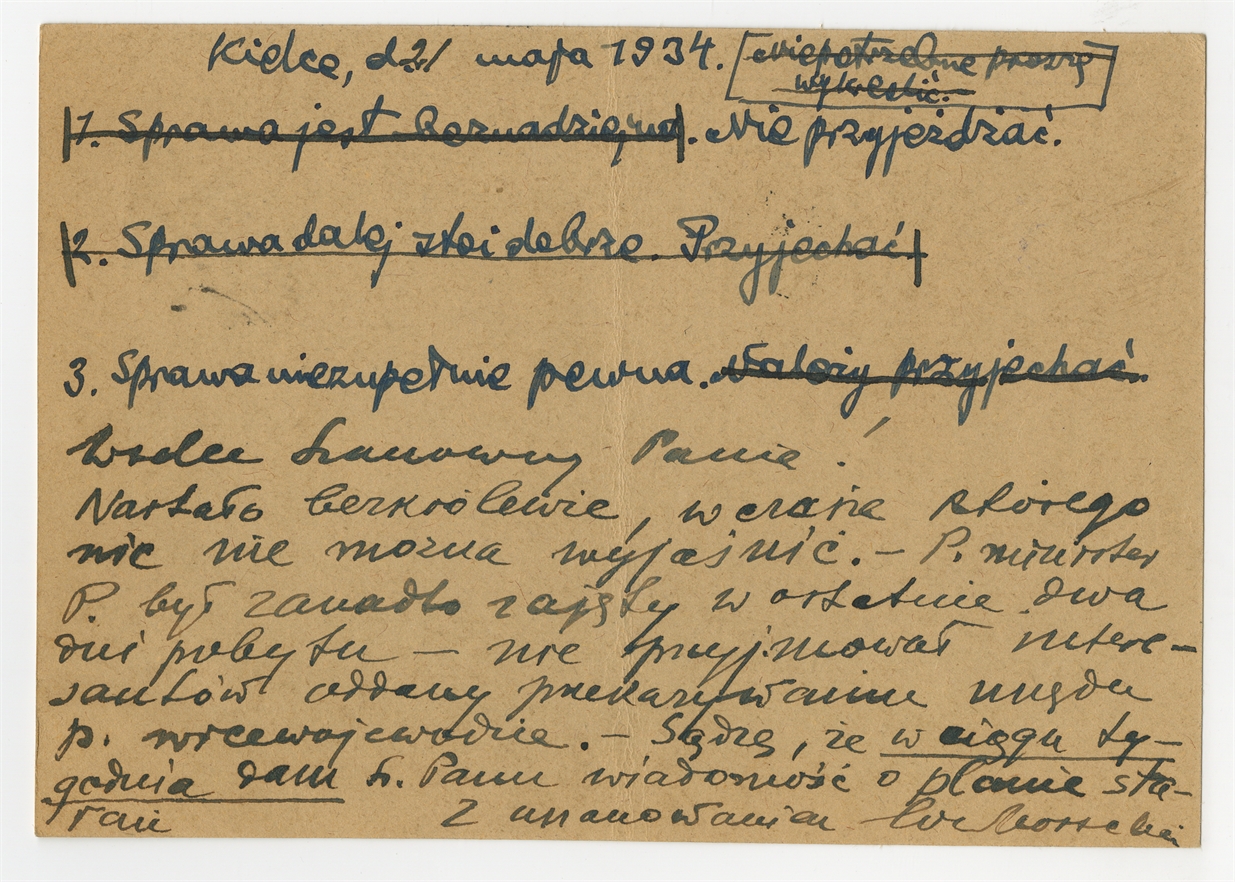 Kielce, d 21 maja 1934. Niepotrzebne proszę
wykreślić.
1. Sprawa jest beznadziejna. Nie przyjeżdżać.
2. Sprawa dalej stoi dobrze. Przyjechać
3. Sprawa niezupełnie pewna. Należy przyjechać.
Wielce Szanowny Panie!
Nastało bezkrólewie, w czasie którego
nic nie można wyjaśnić. – P. minister
P. był zanadto zajęty w ostatnie dwa
dni pobytu – nie przyjmował intere-
santów oddany przekazywaniu urzędu
p. wicewojewodzie. – Sądzę, że w ciągu ty-
godnia dam Sz. Panu wiadomość o planie sta-
rań Z uszanowaniem